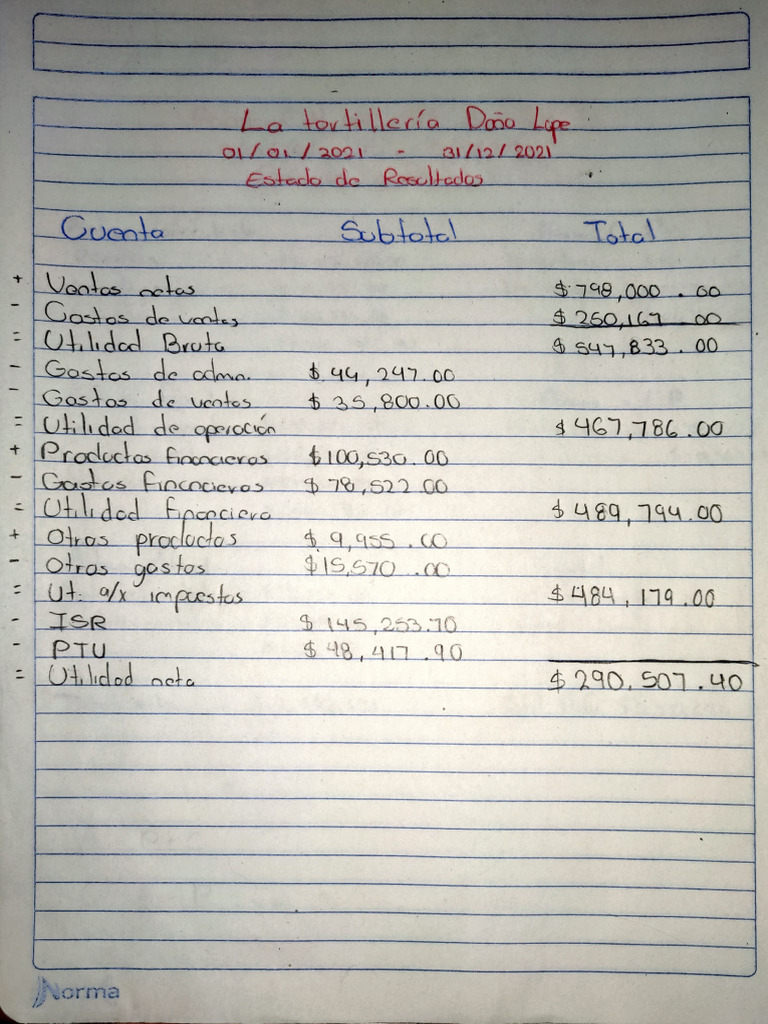 La tortillería Doña Lupe
01/01/2021 - 31/12/2021
Estado de Resultados
Cuenta Subtotal Total
+ Ventas netas $798,000.00
- Costos de ventas $250,167.00
= Utilidad Bruta $547,833.00
- Gastos de admn. $44,247.00
- Gastos de ventas $35,800.00
= Utilidad de operación $467,786.00
+ Productos financieros $100,530.00
- Gastos financieros $78,522.00
= Utilidad financiera $489,794.00
+ Otros productos $9,955.00
- Otros gastos $15,570.00
= Ut. a/x impuestos $484,179.00
- ISR $145,253.70
- PTU $48,417.90
= Utilidad neta $290,507.40
Norma